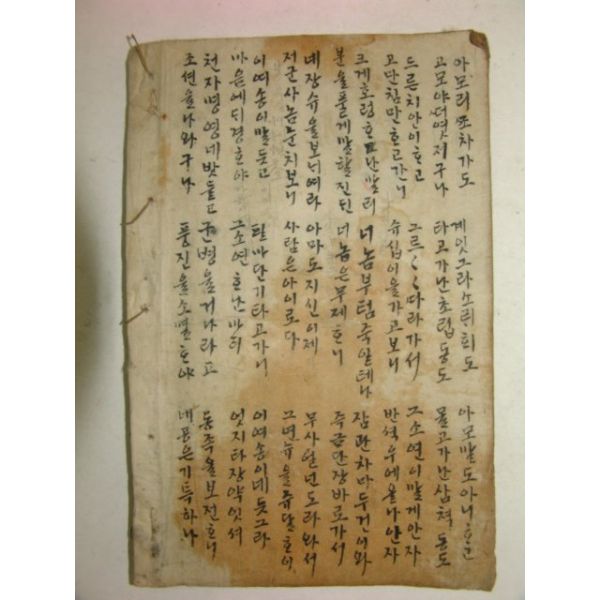 아모리쪼차가도 계잇그라소릭희도 아모말도아니호고
고모야더옛저구나 타고가난초립동도 몰고가난삼쳑동도
드른치안이호고 그르〱따라가서 그소연이말게안자
고단침만호고간니 슈십이을가고보니 반셕우에올나안자
크게호령호난말리 너놈부텀죽일테나 잠관차마두건이와
분을풀게말할진딘 너놈은무제호니 즉금단장바로가서
네장슈을보너여라 아마도지신이제 무사일넌도라와서
저군사놈눈치보니 사람은아이로다 그연뉴을쥬달호이
이여송이말듯고 틸마단기타고가니 이여송이네듯그라
마음에디경호야 그소연호난마리 잇지타장약잇셔
천자명영네밧들고 군병을거나라고 동족을보전호니
조션을나와구나 풍진을소멸호야 네공은기특하나